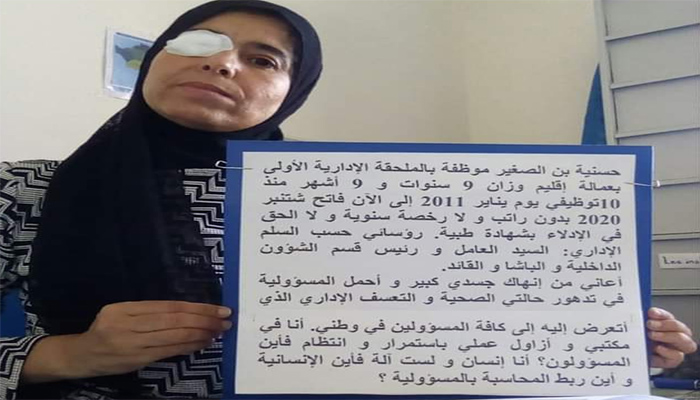 حسنية بن الصغير موظفة بالملحقة الإدارية الأولى
بعمالة إقليم وزان 9 سنوات و 9 أشهر منذ
توظيفي يوم 10 يناير 2011 إلى الآن فاتح شتنبر
2020 بدون راتب و لا رخصة سنوية و لا الحق
في الإدلاء بشهادة طبية. رؤسائي حسب السلم
الإداري: السيد العامل و رئيس قسم الشؤون
الداخلية و الباشا و القائد.
أعاني من إنهاك جسدي كبير و أحمل المسؤولية
في تدهور حالتي الصحية و التعسف الإداري الذي
أتعرض إليه إلى كافة المسؤولين في وطني. أنا في
مكتبي و أزاول عملي باستمرار و انتظام فأين
المسؤولون؟ أنا إنسان و لست آلة فأين الإنسانية
و أين ربط المحاسبة بالمسؤولية ؟